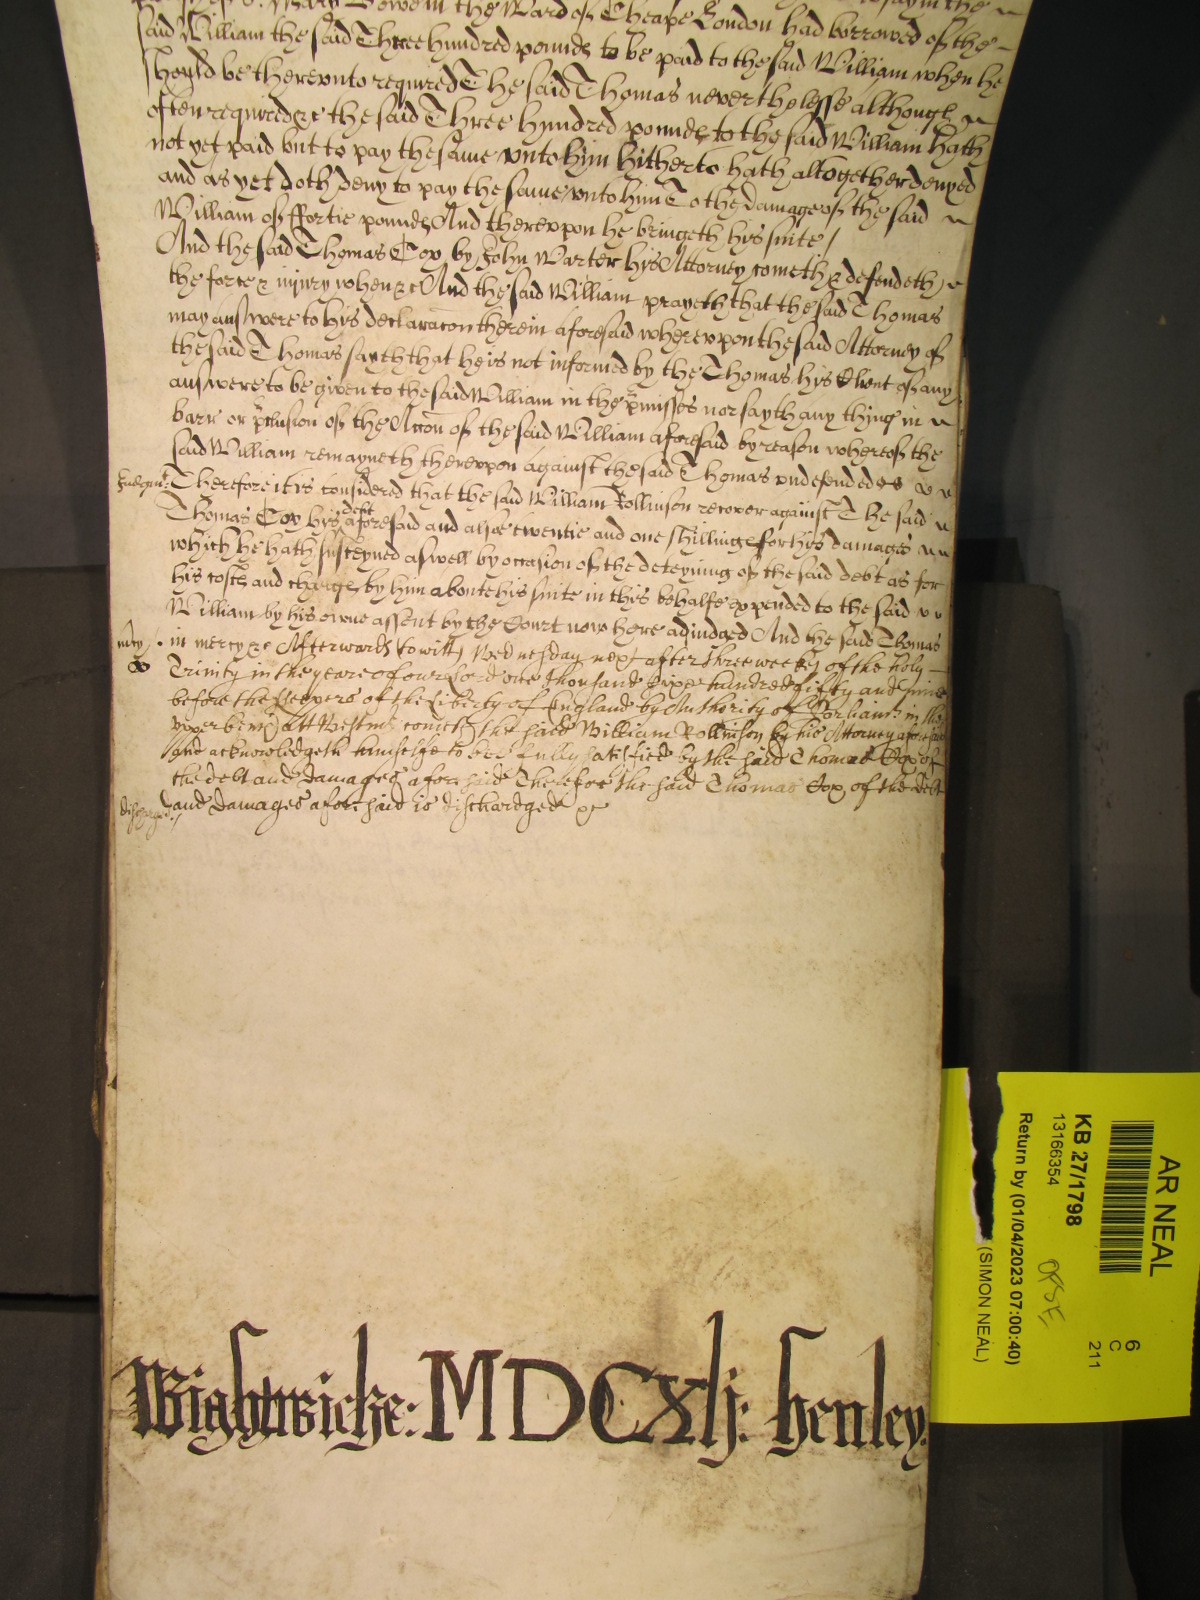 Mary Bowe in the Ward of Cheape London had borrowed of the
said William the said Three hundred pounds to be paid to the said William when he
should be therevnto required The said Thomas neverthelesse although
often required &c the said Three hundred pounds to the said William hath
not yet paid but to pay the same vnto him hitherto hath altogether denyed
and as yet doth deny to pay the same vnto him To the damage of the said
William of ffortie pounds And therevpon he bringeth his suite /
And the said Thomas Cox by John Warter his Attorney cometh & defendeth
the force & injury when &c And the said William prayeth that the said Thomas
may answere to his declaracon therein aforesaid wherevpon the said Attorney of
the said Thomas sayth that he is not informed by the Thomas his Client of any
answere to be given to the said William in the p̄misses nor sayth any thing in
barr or p̄clusion of the Accōn of the said William aforesaid by reason whereof the
said William remayneth therevpon against the said Thomas vndefended
Judgmt: Therefore it is considered that the said William Rollinson recover against The said
Thomas Cox his debt aforesaid and alsoe twentie and one shillings for his damages
which he hath susteyned aswell by occasion of the deteyning of the said debt as for
his costs and charges by him aboute his suite in this behalfe expended to the said
William by his owne assent by the Court now here adiudged And the said Thomas
mcy in mercy &c Afterwards to witt Wednesday next after three weekes of the holy
Trinity in the yeare of our Lord one thousand sixe hundred fifty and nine
before the Keepers of the liberty of England by Authority of Parliamt in the
vpper bench att Westmr cometh the said William Rollinson by his Attorney aforesaid
and acknowledgeth himselfe to bee fully satisfied by the said Thomas Cox of
the debt and damages aforesaid Therefore the said Thomas Cox of the debt
discharged and damages aforesaid is dischardged &c
Wightwicke: MDCXlj: henley:
AR NEAL
KB 27/1798
13166354
Return by (01/04/2023 07:00:40)
(SIMON NEAL)
6
C
211